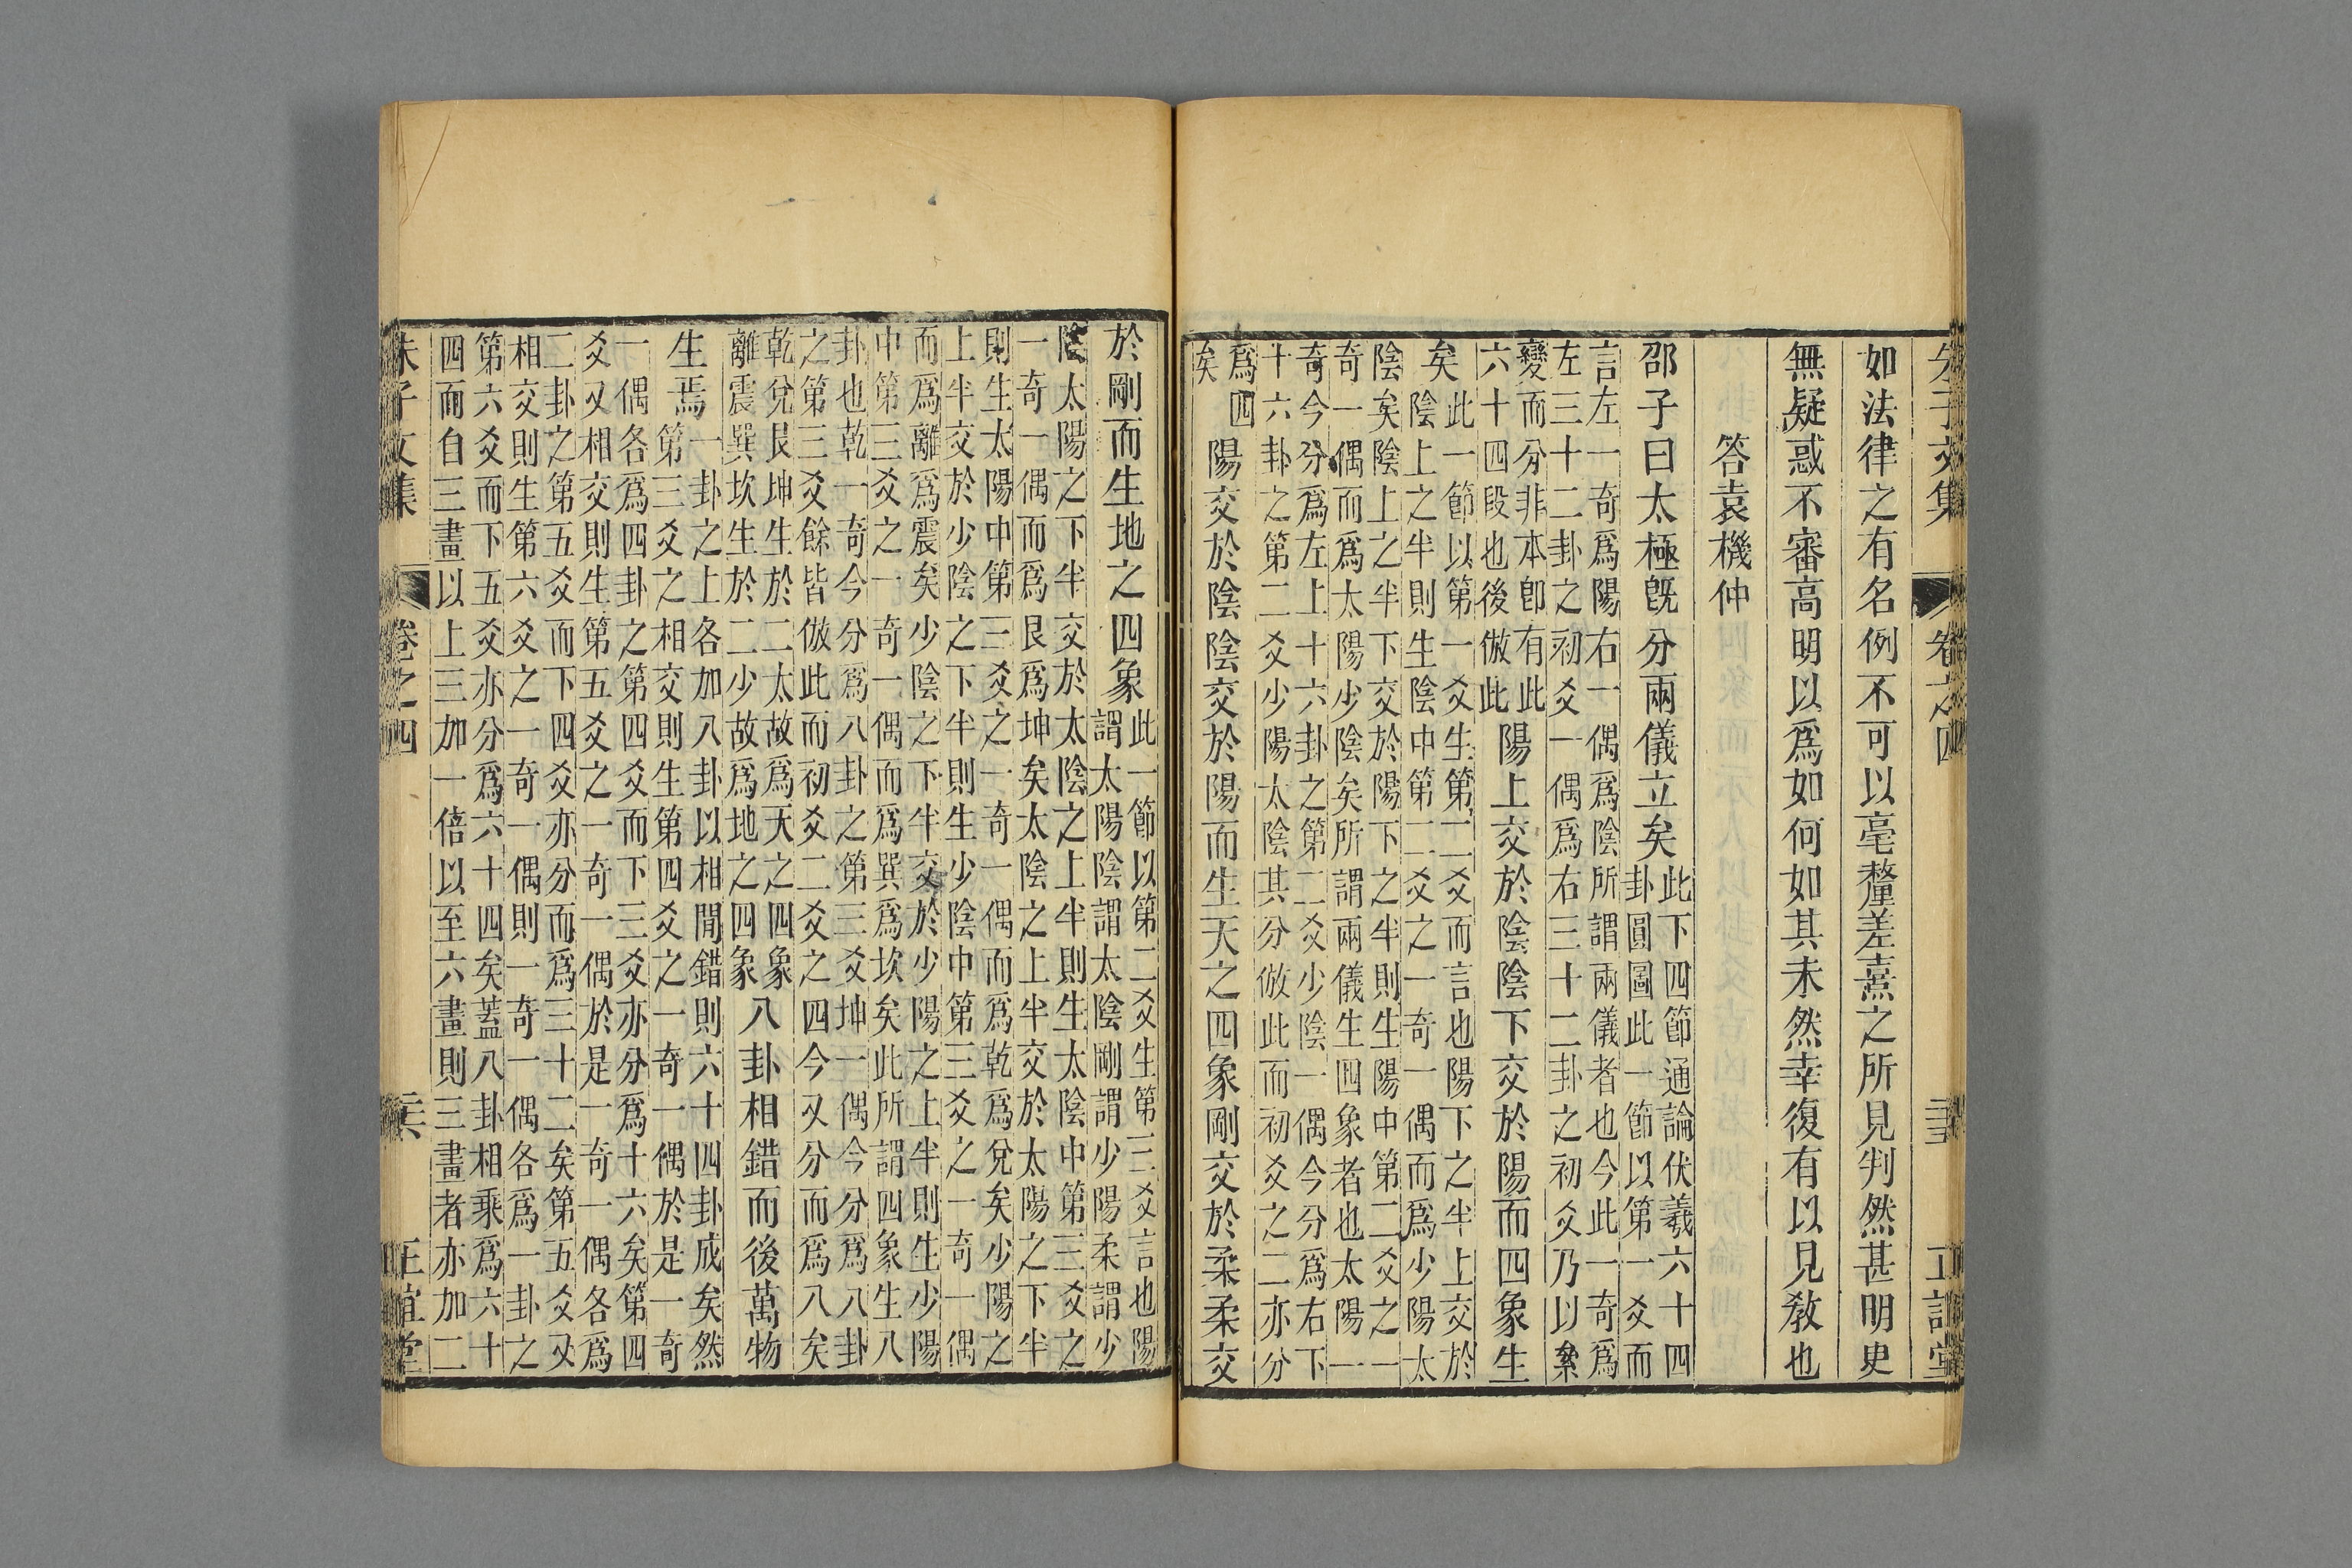 朱子文集　卷之四　正誼堂
如法律之有名例不可以毫釐差熹之所見判然甚明史
無疑惑不審高明以爲如何如其未然幸復有以見教也
答袁機仲
邵子曰太極旣分兩儀立矣此下四節通論伏羲六十四
卦圓圖此一節以第一爻而
言左一奇爲陽右一偶爲陰所謂兩儀者也今此一奇爲
左三十二卦之初爻一偶爲右三十二卦之初爻乃以絫
變而分非本卽有此
六十四段也後倣此陽上交於陰陰下交於陽而四象生
矣此一節以第一爻生第二爻而言也陽下之半上交於
陰上之半則生陰中第二爻之一奇一偶而爲少陽太
陰矣陰上之半下交於陽下之半則生陽中第二爻之一
奇一偶而爲太陽少陰矣所謂兩儀生四象者也太陽一
奇今分爲左上十六卦之第二爻少陰一偶今分爲右下
十六卦之第二爻少陽太陰其分倣此而初爻之二亦分
爲四
矣陽交於陰陰交於陽而生天之四象剛交於柔柔交
於剛而生地之四象此一節以第二爻生第三爻言也陽
謂太陽陰謂太陰剛謂少陽柔謂少
陰太陽之下半交於太陰之上半則生太陰中第三爻之
一奇一偶而爲艮爲坤矣太陰之上半交於太陽之下半
則生太陽中第三爻之一奇一偶而爲乾爲兌矣少陽之
上半交於少陰之下半則生少陰中第三爻之一奇一偶
而爲離爲震矣少陰之下半交於少陽之上半則生少陽
中第三爻之一奇一偶而爲巽爲坎矣此所謂四象生八
卦也乾一奇今分爲八卦之第三爻坤一偶今分爲八卦
之第三爻餘皆倣此而初爻二爻之四今又分而爲八矣
乾兌艮坤生於二太故爲天之四象
離震巽坎生於二少故爲地之四象八卦相錯而後萬物
生焉一卦之上各加八卦以相間錯則六十四卦成矣然
第三爻之相交則生第四爻之一奇一偶於是一奇
一偶各爲四卦之第四爻而下三爻亦分爲十六矣第四
爻又相交則生第五爻之一奇一偶於是一奇一偶各爲
二卦之第五爻而下四爻亦分而爲三十二矣第五爻又
相交則生第六爻之一奇一偶則一奇一偶各爲一卦之
第六爻而下五爻亦分爲六十四矣蓋八卦相乘爲六十
四而自三畫以上三加一倍以至六畫則三畫者亦加二
朱子文集　卷之四　正誼堂